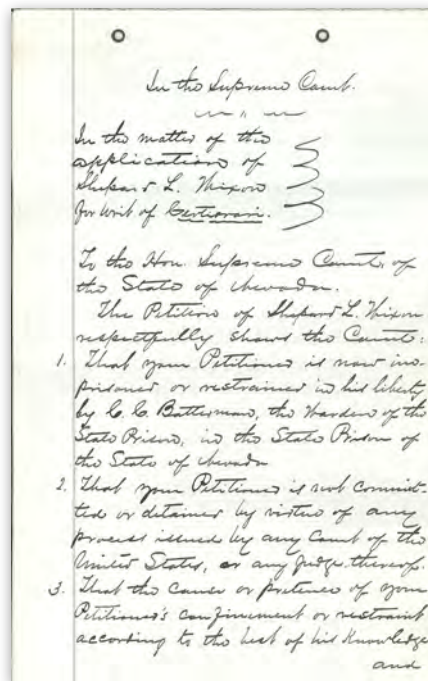 In the Supreme Court.
In the matter of the
application of
Shepard L. Nixon
for writ of Certiorari.
To the Hon. Supreme Court, of
the State of Nevada.
The Petition of Shepard L. Nixon
respectfully shows the Court:
1. That your Petitioner is now im-
prisoned or restrained in his liberty
by C. C. Batterman, the Warden of the
State Prison, in the State Prison of
the State of Nevada
2. That your Petitioner is not commit-
ted or detained by virtue of any
process issued by any Court of the
United States, or any Judge thereof.
3. That the cause or pretence of your
Petitioner's confinement or restraint
according to the best of his knowledge
and